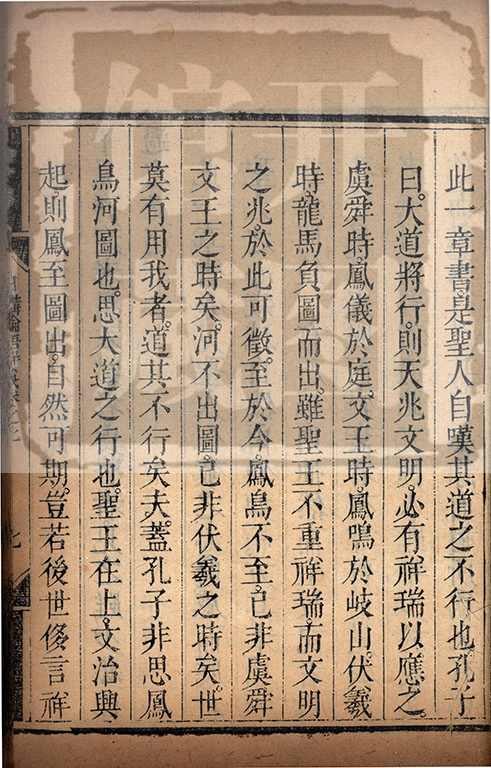 此一章書是聖人自嘆其道之不行也孔子
曰大道將行則天兆文明必有祥瑞以應之
虞舜時鳳儀於庭文王時鳳鳴於岐山伏羲
時龍馬負圖而出雖聖王不重祥瑞而文明
之兆於此可徵至於今鳳鳥不至已非虞舜
文王之時矣河不出圖已非伏羲之時矣世
莫有用我者道其不行矣夫蓋孔子非思鳳
鳥河圖也思大道之行也聖王在上文治興
起則鳳至圖出自然可期豈若後世侈言祥
日講論語解義卷之七